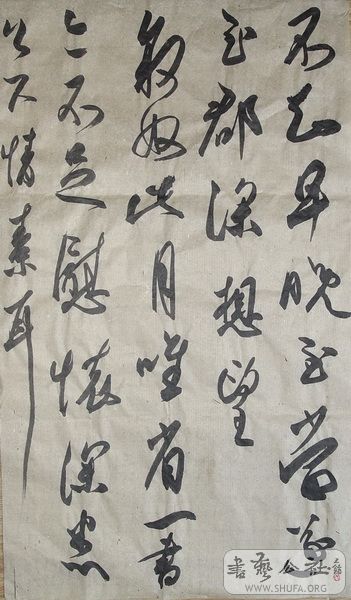 不知早晚至當
至郡深想望
奴此月唯省一書
亦不足慰懷深
下情素耳
書藝公社
WWW.SHUFA.ORG